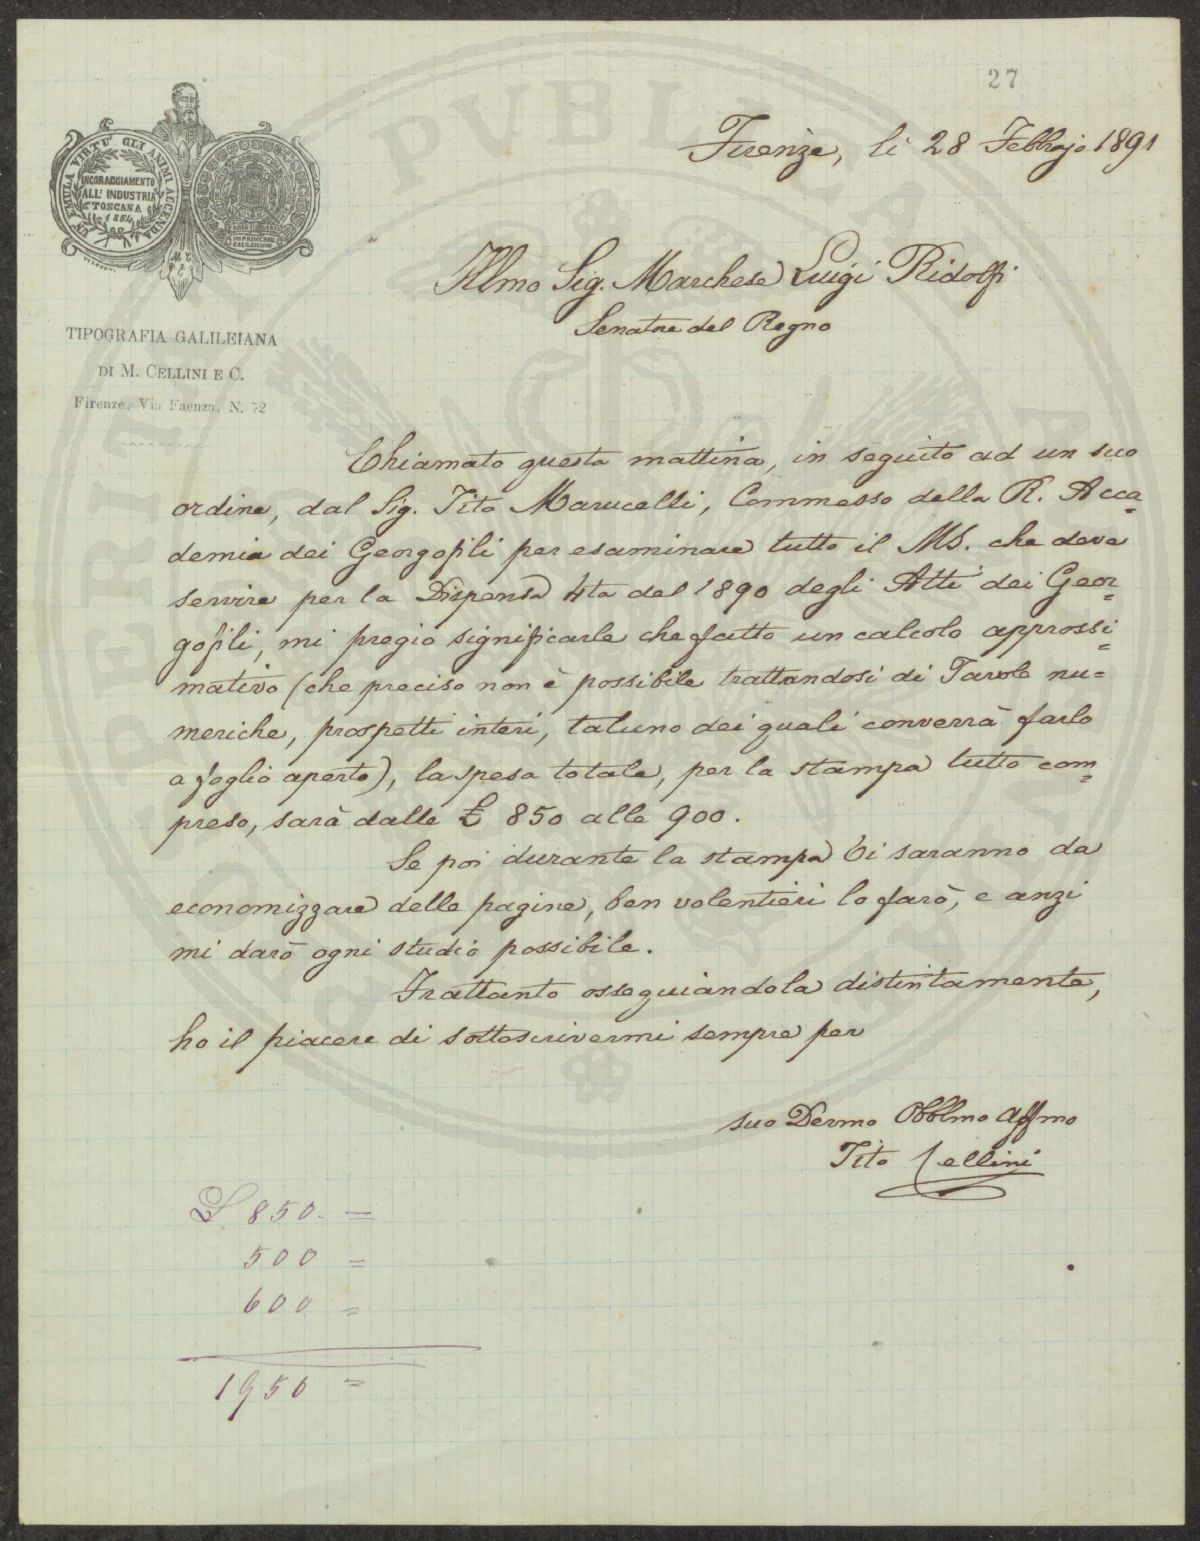 27
Firenze, li 28 Febbrajo 1891
UN EMULA VIRTU' GLI ANIMI ACCENDA
INCORAGGIAMENTO
ALL' INDUSTRIA
TOSCANA
1854
IMPRIMERIE
GALILEIENNE
TIPOGRAFIA GALILEIANA
DI M. CELLINI E C.
Firenze, Via Faenza, N. 72
Illmo Sig. Marchese Luigi Ridolfi
Senatore del Regno
Chiamato questa mattina, in seguito ad un suo
ordine, dal Sig. Tito Marucelli, Commesso della R. Acca=
demia dei Georgofili per esaminare tutto il MS. che deve
servire per la Dispensa 4ta del 1890 degli Atti dei Geor=
gofili, mi pregio significarle che fatto un calcolo approssi=
mativo (che preciso non è possibile trattandosi di Tavole nu=
meriche, prospetti interi, taluno dei quali converrà farlo
a foglio aperto), la spesa totale, per la stampa tutto com=
preso, sarà dalle £ 850 alle 900.
Se poi durante la stampa vi saranno da
economizzare delle pagine, ben volentieri lo farò, e anzi
mi darò ogni studio possibile.
Trattanto ossequiandola distintamente,
ho il piacere di sottoscrivermi sempre per
suo Devmo Obblmo Affmo
Tito Cellini
£ 850. =
500 =
600 =
1950 =